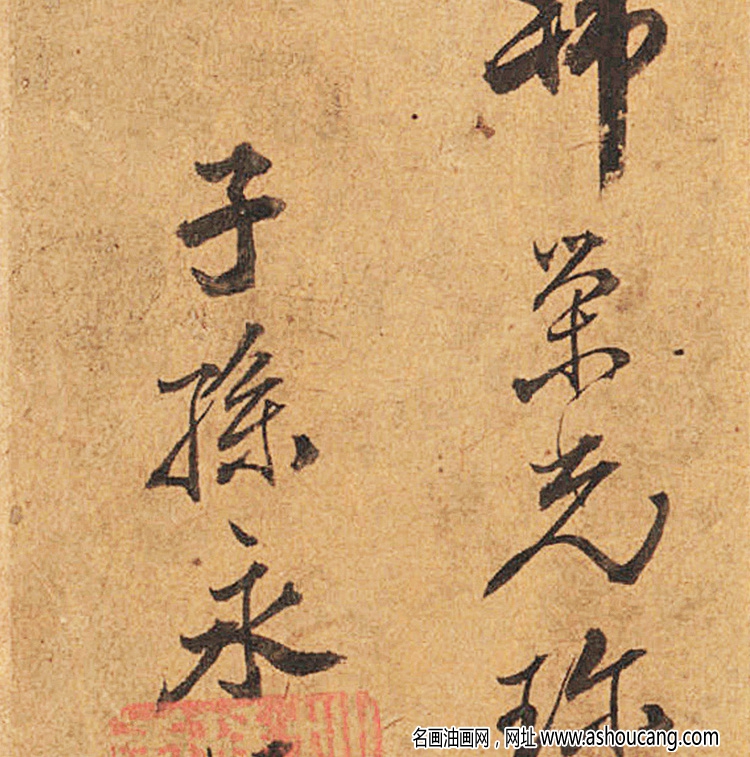 神榮光珎
子孫永
名画油画网，网址 www.ashoucang.com